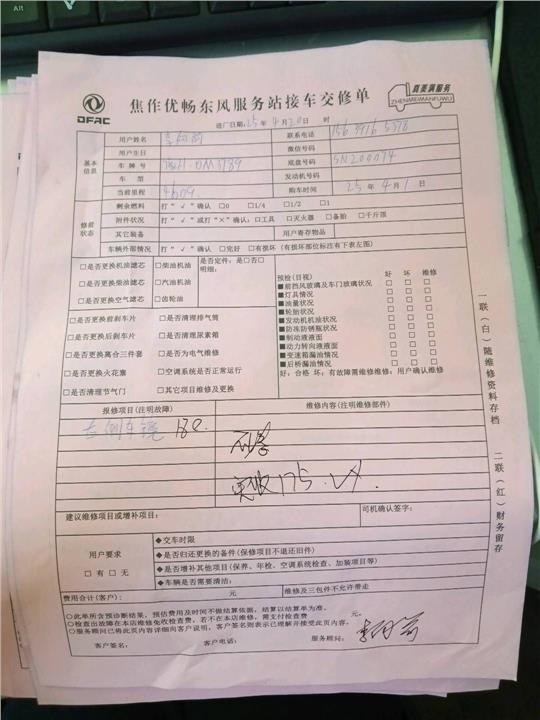 Alt
DFAC
焦作优畅东风服务站接车交修单
真美满服务
ZHENMEIMANFUWU
进厂日期：25年 4月20日 时
基本信息
用户姓名
联系电话
用户生日
微信号码
车牌号
底盘号码 SN200074
车型
发动机号码
当前里程
购车时间 25年 4月 1日
修前状态
剩余燃料 打“√”确认 □0 □1/4 □1/2 □1
附件状况 打“√”或打“×”确认：□工具 □灭火器 □备胎 □千斤顶
其它装备 用户寄存物品
车辆外部情况 打“√”确认 □完好 □有损坏（有损坏部位标注有下表左图）
□是否更换机油滤芯 □柴油机油
□是否更换柴油滤芯 □汽油机油
□是否更换空气滤芯 □齿轮油
是否定件：是□否□
明细：
□是否更换前刹车片 □是否清理排气筒
□是否更换后刹车片 □是否清理尿素箱
□是否更换离合三件套 □是否为电气维修
□是否更换火花塞 □空调系统是否正常运行
□是否清理节气门 □其它项目维修及更换
预检(目视) 好 坏 维修
■前挡风玻璃及车门玻璃状况 □ □ □
■灯具情况 □ □ □
■油量状况 □ □ □
■轮胎状况 □ □ □
■发动机机油状况 □ □ □
■防冻防锈瓶状况 □ □ □
■制动液液面 □ □ □
■动力转向液液面 □ □ □
■变速箱漏油情况 □ □ □
■后桥漏油情况 □ □ □
好：合格 坏：有故障需维修维修：用户确认维修
报修项目(注明故障)
维修内容(注明维修部件)
右倒车镜 180.
建议维修项目或增补项目：
司机确认签字：
用户要求
□有 □无
◆交车时限
◆是否归还更换的备件(保修项目不退还旧件)
◆是否增补其他项目(保养、年检、空调系统检查、加装项目等)
◆车辆是否需要清洁：
费用合计(客户)： 元
维修及三包件不允许带走
○此单所含预诊断结果，预估费用及时间不做结算依据，结算以结算单为准。
○检查出故障在本店维修免收检查费，若不在本店维修，需支付检查费 元。
○服务顾问已将此页内容详细向客户说明，客户签名则表示已理解并接受此页内容。
客户签名： 客户电话： 服务顾问：
一联（白）随维修资料存档
二联（红）财务留存